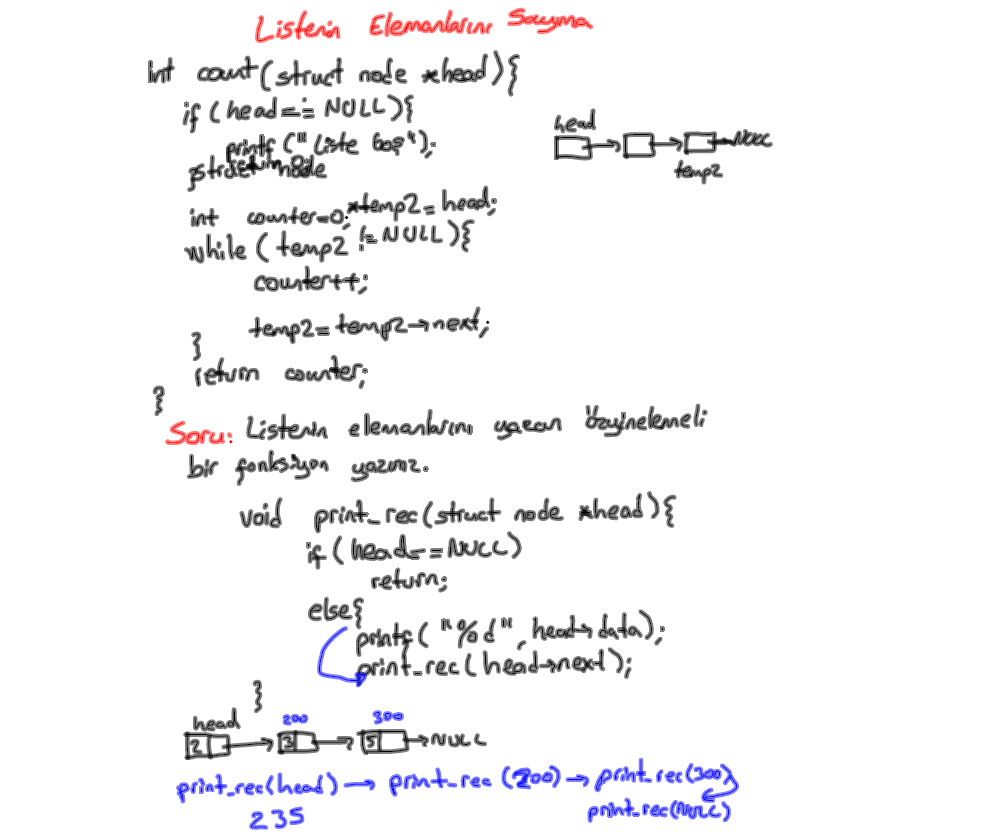 Listenin Elemanlarını Sayma
int count(struct node *head){
if (head== NULL){
printf ("Liste boş");
}struct node
*temp2=head;
int counter=0;
while (temp2 !=NULL){
counter++;
temp2=temp2→next;
}
return counter;
}
head
NULL
temp2
Soru: Listenin elemanlarını yazan özyinelemeli
bir fonksiyon yazınız.
void print_rec(struct node *head){
if (head==NULL)
return;
else{
printf("%d", head→data);
print_rec(head→next);
}
head 200 300
2 3 5 NULL
print_rec(head) → print_rec(200) → print_rec(300)
print_rec(NULL)
235